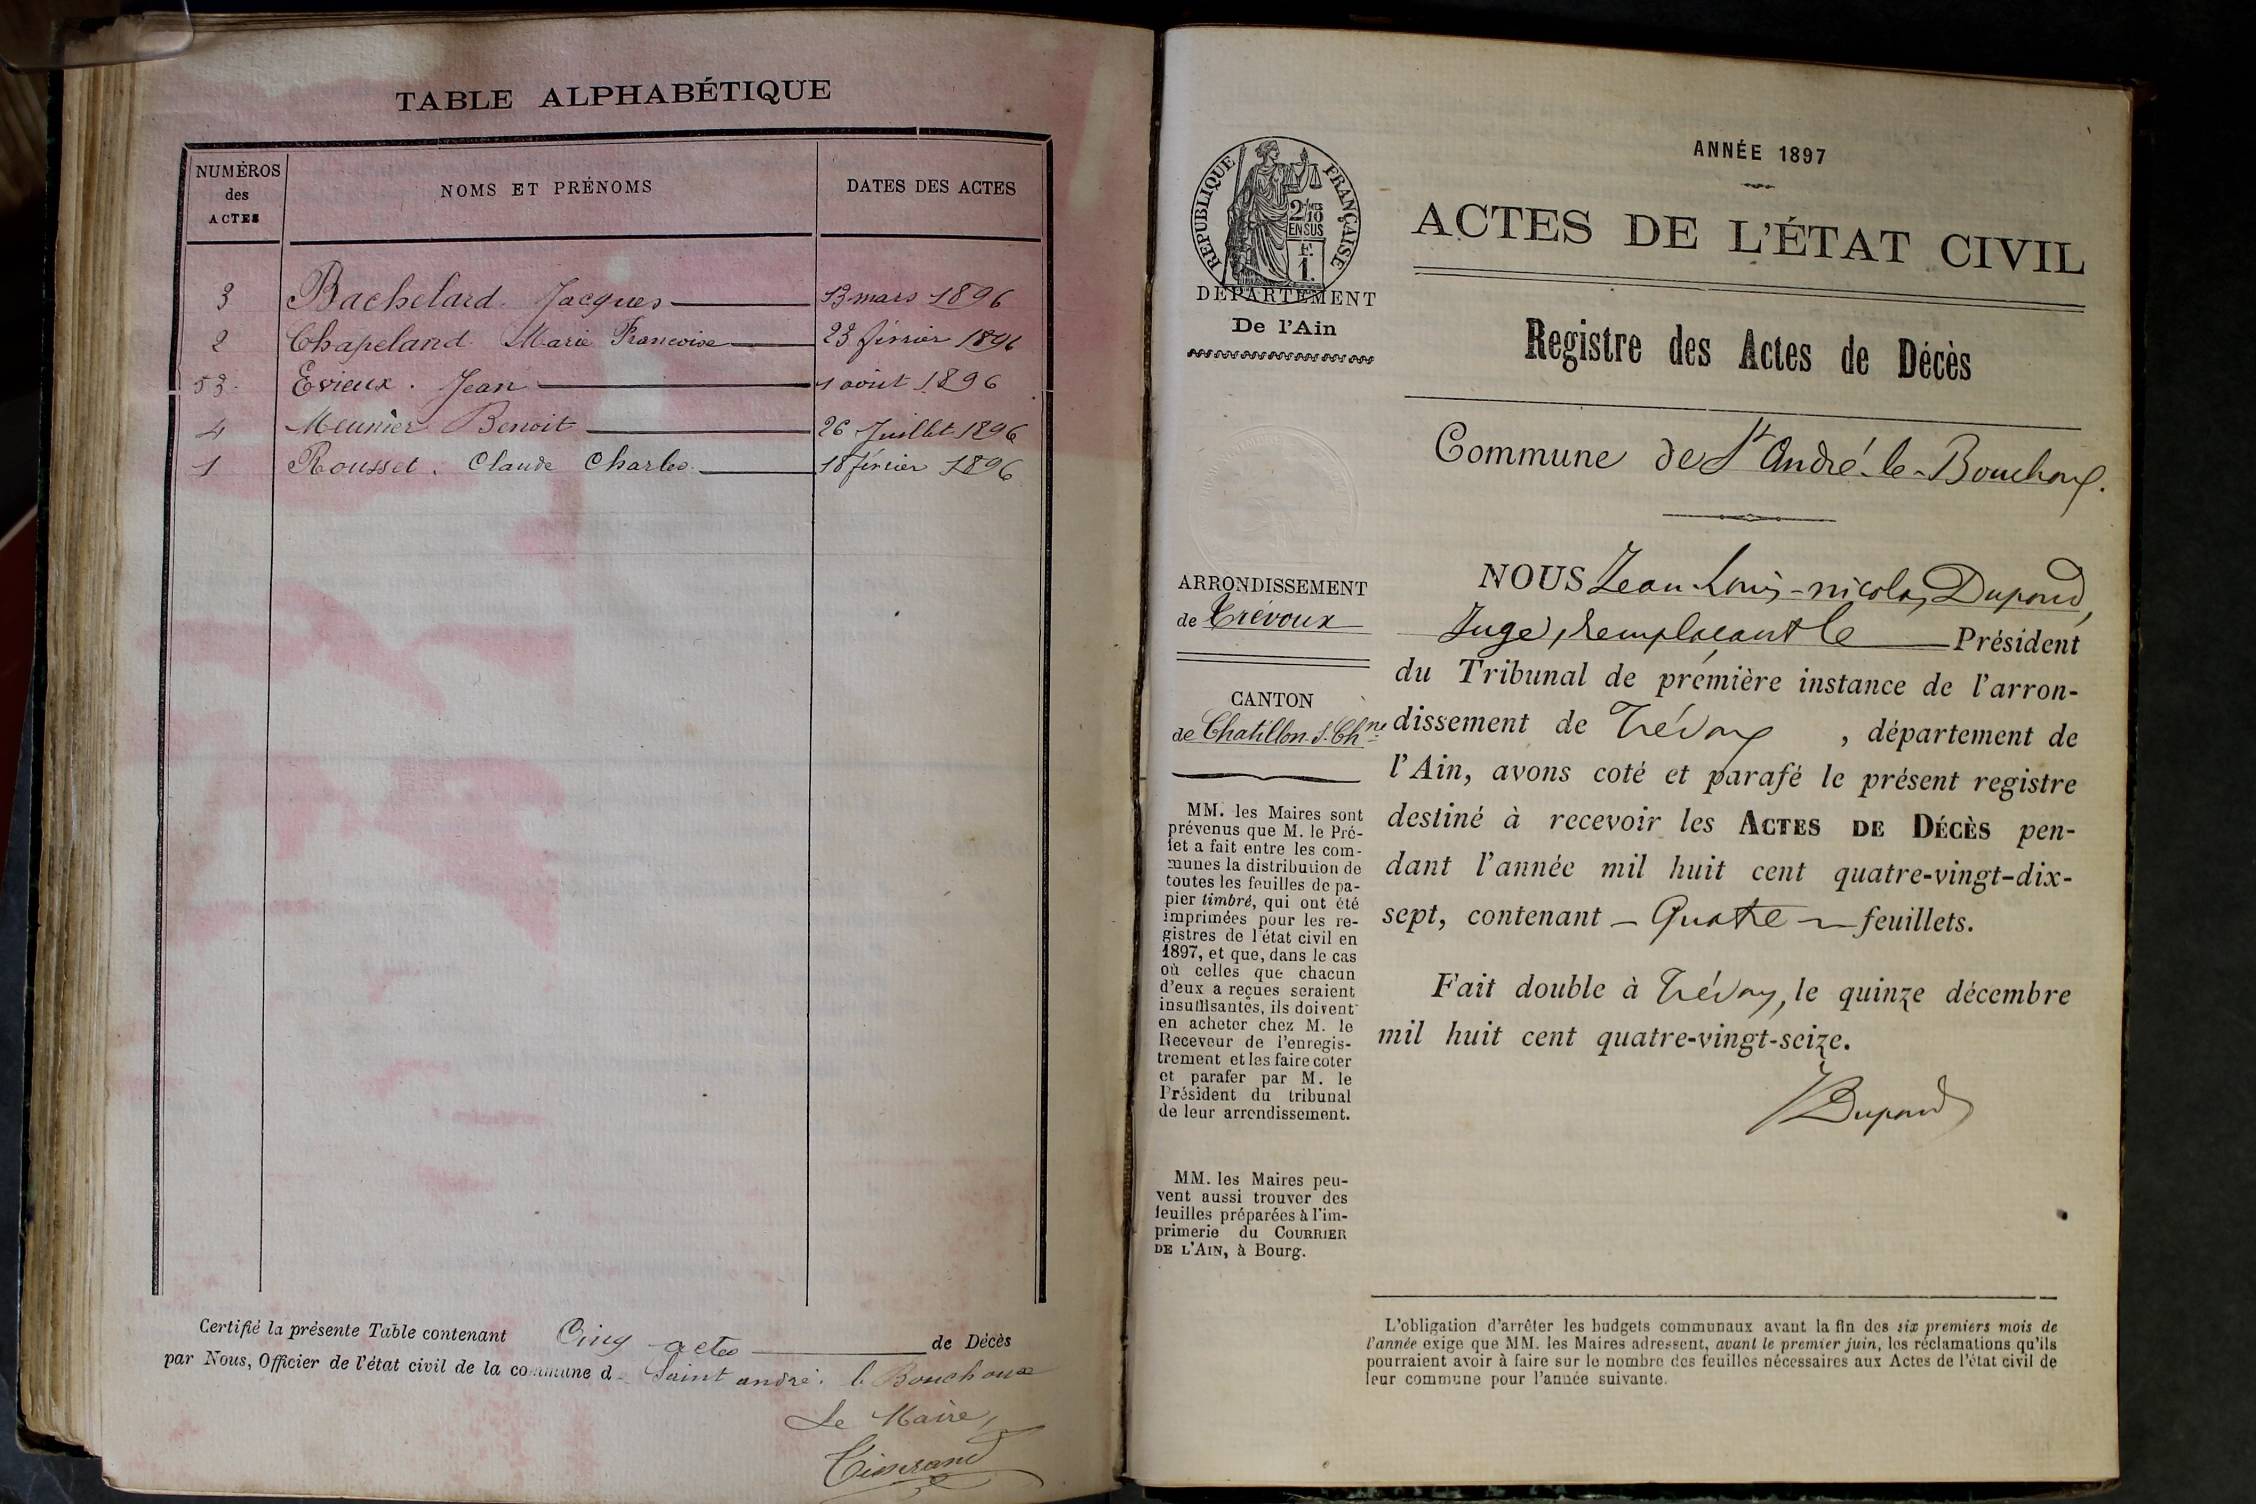 TABLE ALPHABÉTIQUE
NUMÉROS des ACTES
NOMS ET PRÉNOMS
DATES DES ACTES
3 Bachelard Jacques 13 mars 1896
2 Chapeland Marie Francoise 23 février 1896
53 Evieux. Jean 1 août 1896
4 Meunier Benoit 26 Juillet 1896
1 Rousset. Claude Charles 18 février 1896
Certifié la présente Table contenant Cinq actes de Décès
par Nous, Officier de l'état civil de la commune d Saint andré. le Bouchoux
Le Maire,
RÉPUBLIQUE FRANÇAISE
2/10
EN SUS
F.
1.
DÉPARTEMENT
De l'Ain
ARRONDISSEMENT
de Trévoux
CANTON
de Chatillon-s-Chne
MM. les Maires sont
prévenus que M. le Pré-
fet a fait entre les com-
munes la distribution de
toutes les feuilles de pa-
pier timbré, qui ont été
imprimées pour les re-
gistres de l'état civil en
1897, et que, dans le cas
où celles que chacun
d'eux a reçues seraient
insuffisantes, ils doivent
en acheter chez M. le
Receveur de l'enregis-
trement et les faire coter
et parafer par M. le
Président du tribunal
de leur arrondissement.
MM. les Maires peu-
vent aussi trouver des
feuilles préparées à l'im-
primerie du COURRIER
DE L'AIN, à Bourg.
ANNÉE 1897
ACTES DE L'ÉTAT CIVIL
Registre des Actes de Décès
Commune de St André-le-Bouchoux.
NOUS Jean-Louis-nicolas Dupond,
Juge, remplaçant le Président
du Tribunal de première instance de l'arron-
dissement de Trévoux, département de
l'Ain, avons coté et parafé le présent registre
destiné à recevoir les ACTES DE DÉCÈS pen-
dant l'année mil huit cent quatre-vingt-dix-
sept, contenant - Quatre - feuillets.
Fait double à Trévoux, le quinze décembre
mil huit cent quatre-vingt-seize.
JDupond
L'obligation d'arrêter les budgets communaux avant la fin des six premiers mois de
l'année exige que MM. les Maires adressent, avant le premier juin, les réclamations qu'ils
pourraient avoir à faire sur le nombre des feuilles nécessaires aux Actes de l'état civil de
leur commune pour l'année suivante.